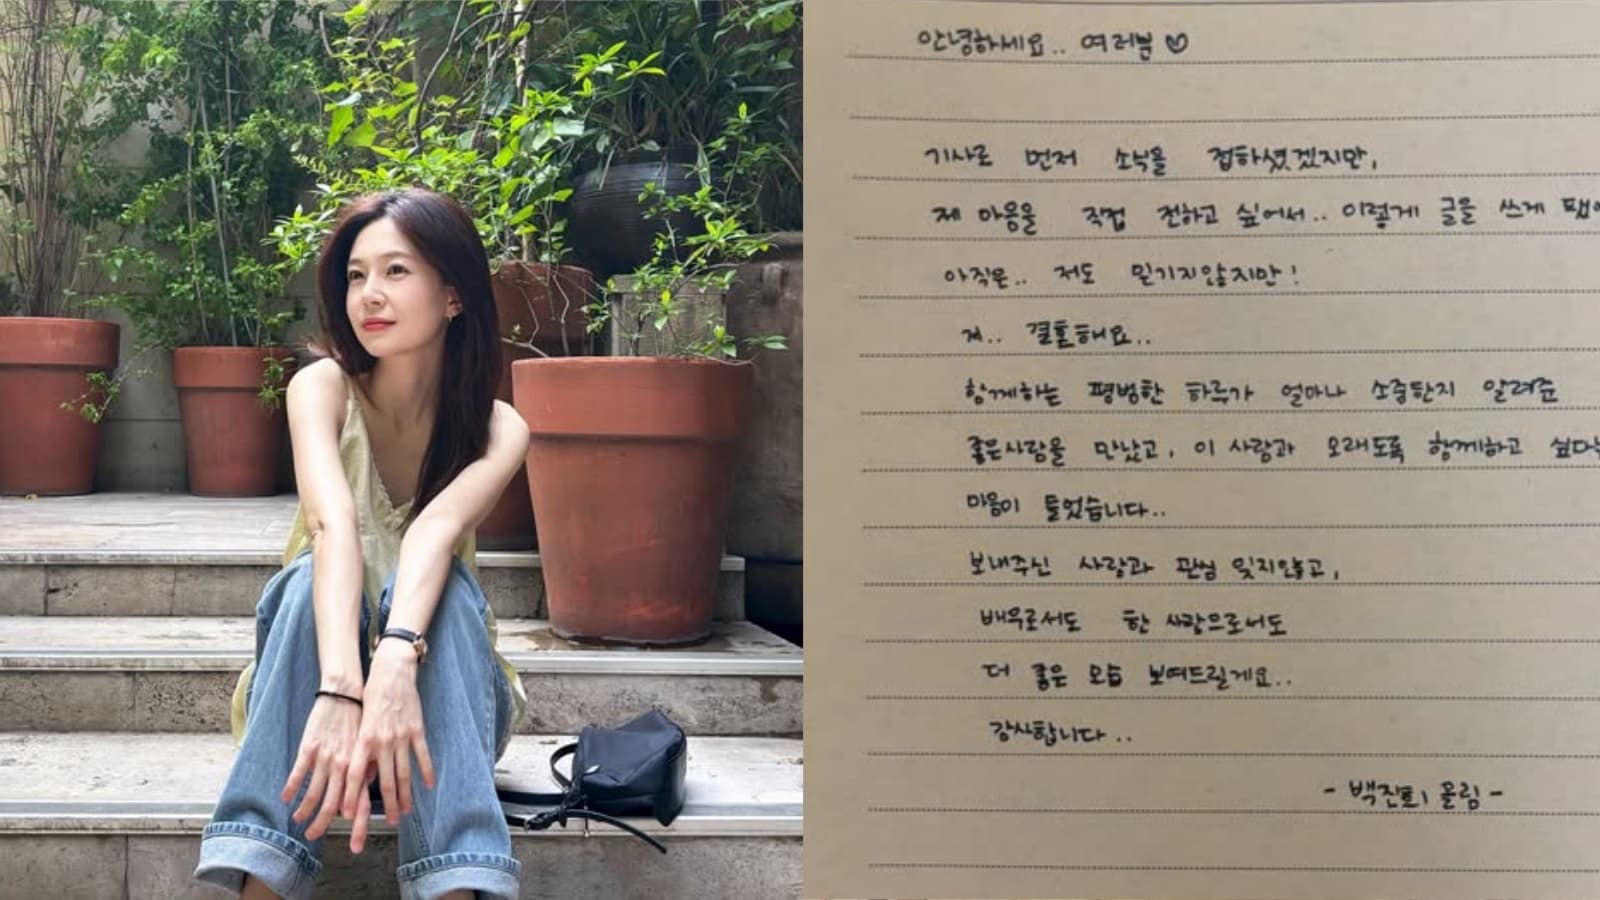 안녕하세요.. 여러분♡
기사로 먼저 소식을 접하셨겠지만,
제 마음을 직접 전하고 싶어서.. 이렇게 글을 쓰게
아직은.. 저도 믿기지않지만!
저.. 결혼해요..
함께하는 평범한 하루가 얼마나 소중한지 알려준
좋은사람을 만났고, 이 사람과 오래도록 함께하고 싶다는
마음이 들었습니다..
보내주신 사랑과 관심 잊지않고,
배우로서도 한 사람으로서도
더 좋은 모습 보여드릴게요..
감사합니다..
- 백진희 올림 -